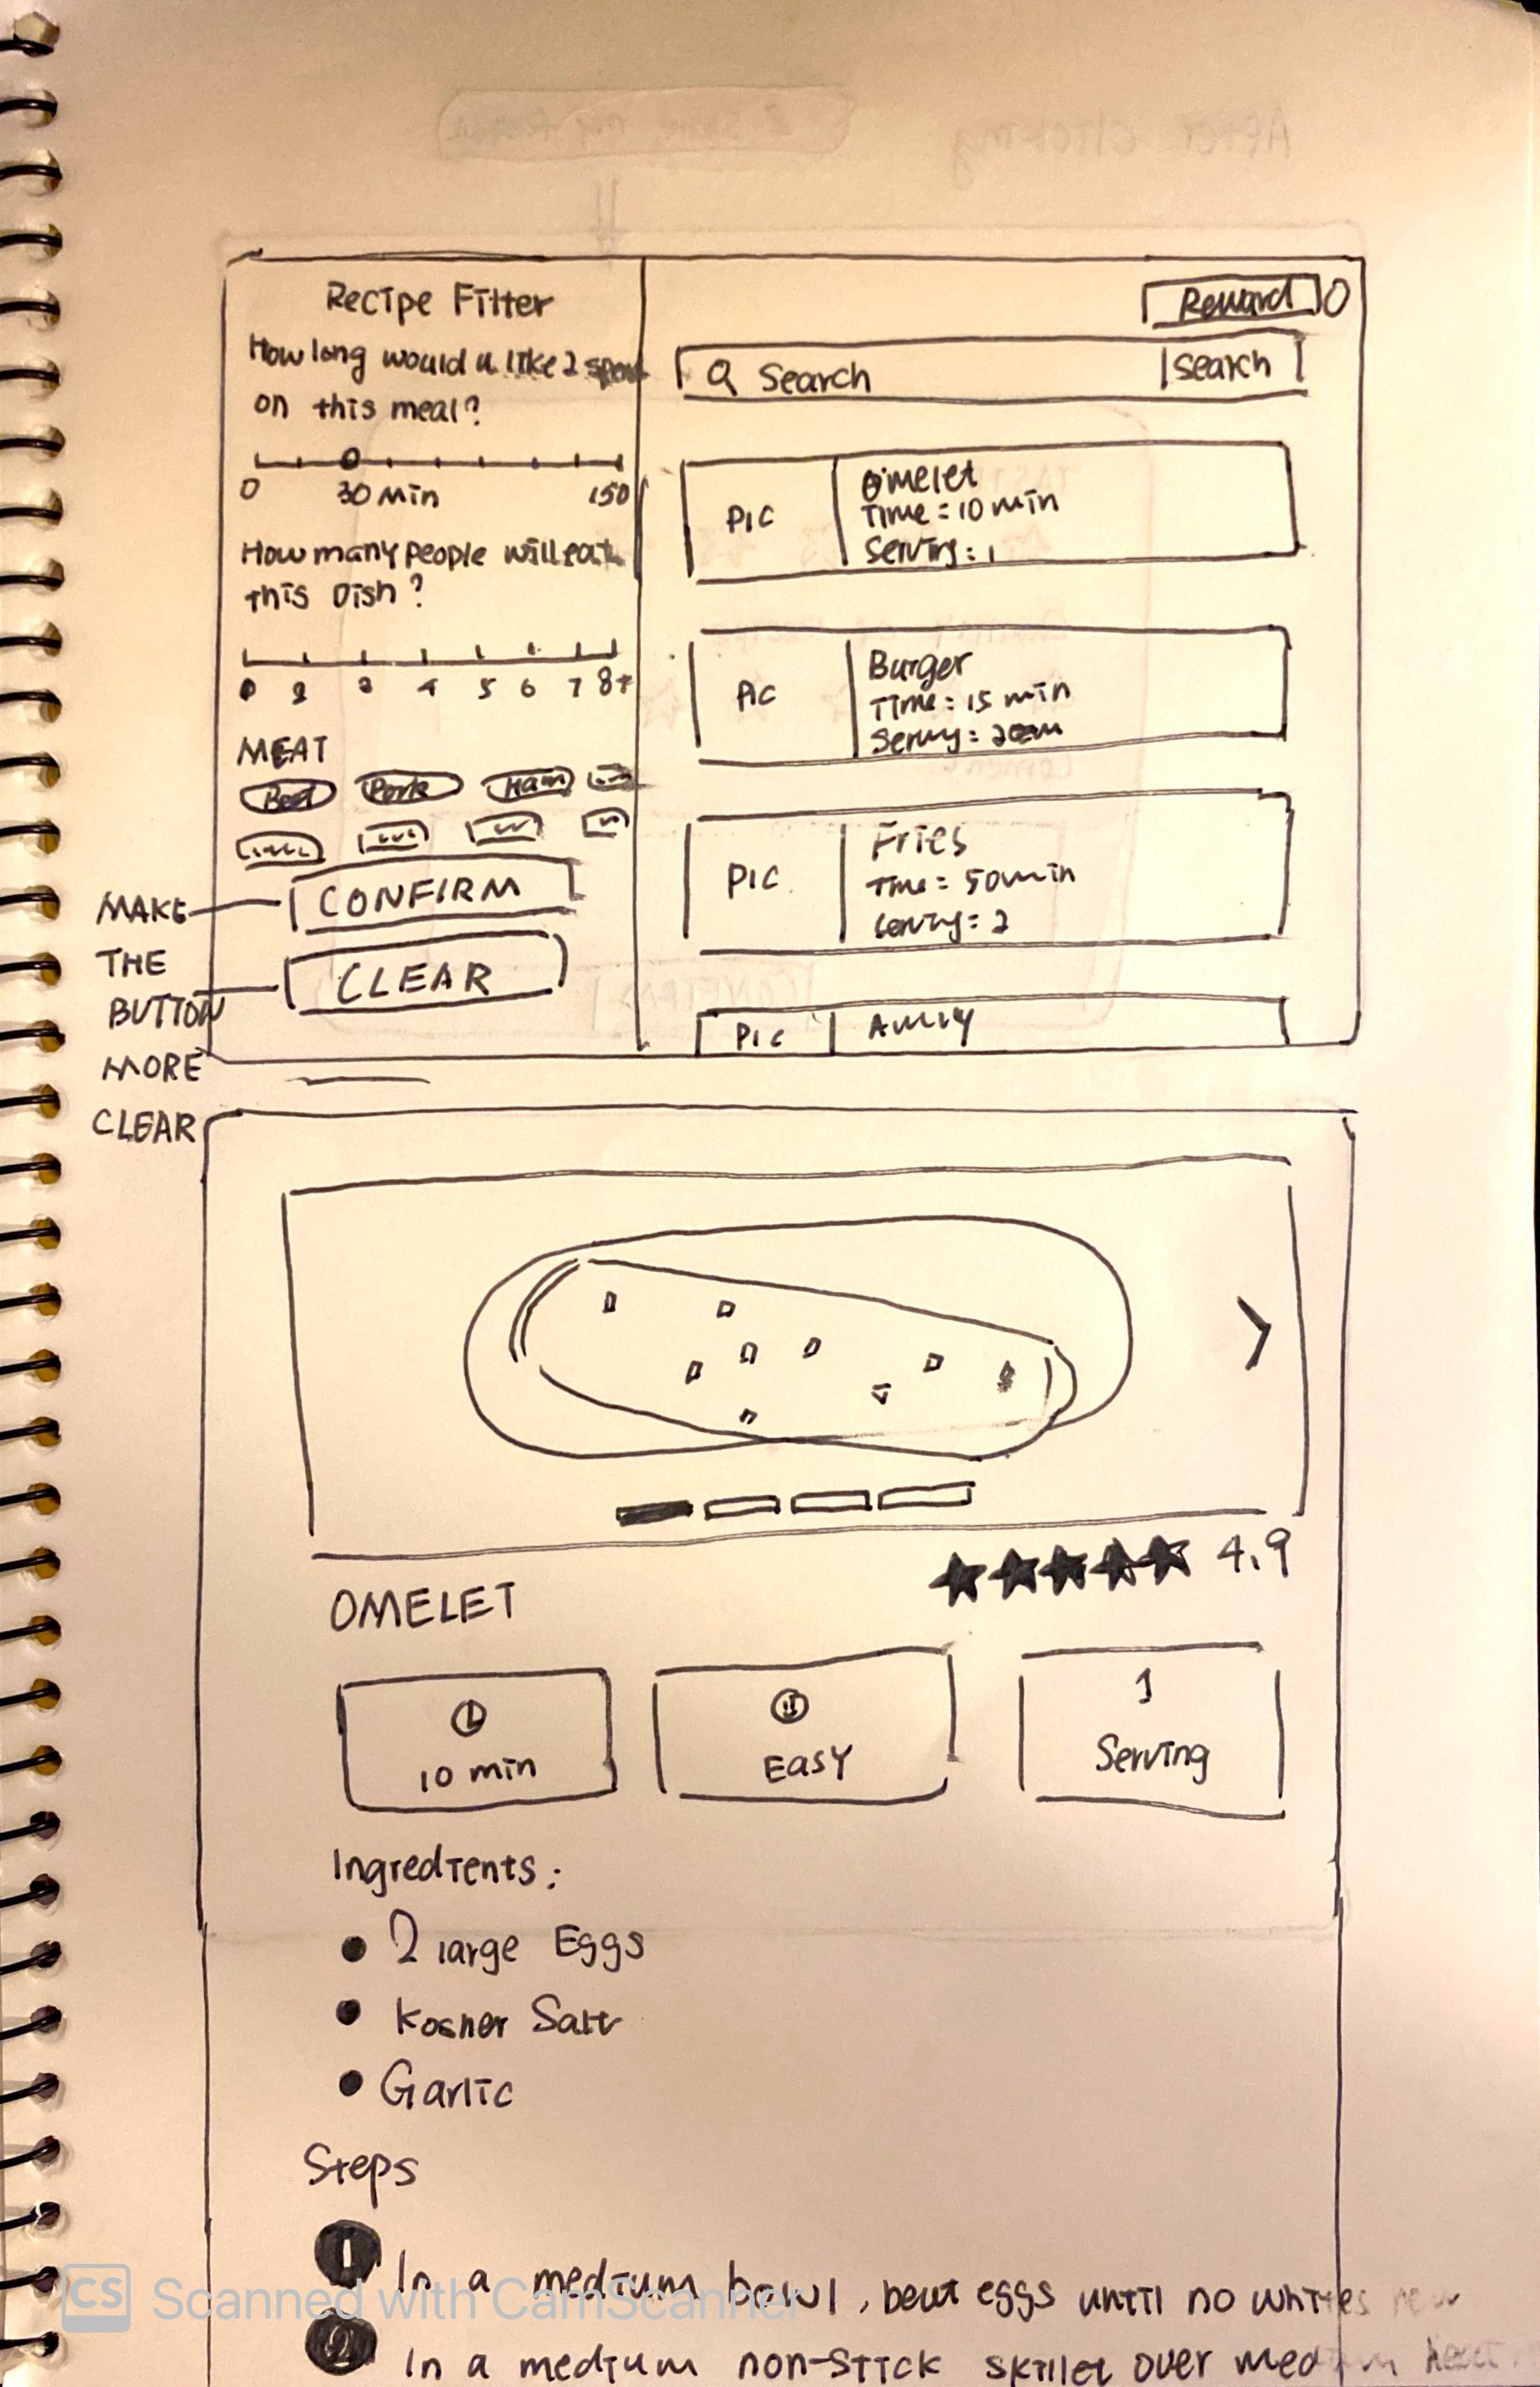 Recipe Filter
How long would u like 2 spent
on this meal?
0 30 Min 150
How many people will eat
this Dish?
4 5 6 7 8+
MEAT
Beef Pork Ham
CONFIRM
CLEAR
MAKE
THE
BUTTON
MORE
CLEAR
Reward
Search Search
PIC
Omelet
Time = 10 min
Serving: 1
Pic
Burger
Time = 15 min
Serving =
PIC
Fries
Time = 50min
Serving = 2
Pic
OMELET
4.9
10 min
Easy
1
Serving
Ingredients:
2 large Eggs
Kosher Salt
Garlic
Steps
1 In a medium bowl, beat eggs until no whites
2 In a medium non-stick skillet over medium heat
CS Scanned with CamScanner
After clicking
CONFIRM